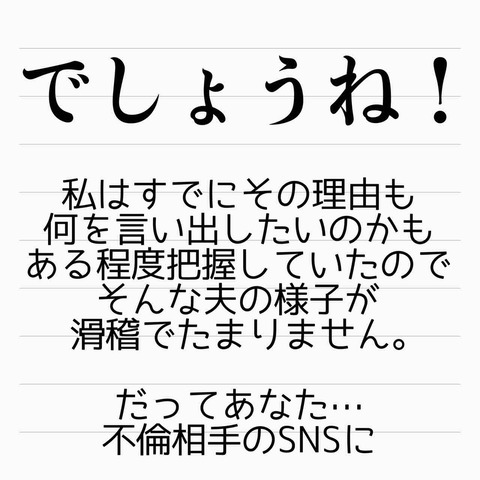 でしょうね！
私はすでにその理由も
何を言い出したいのかも
ある程度把握していたので
そんな夫の様子が
滑稽でたまりません。
だってあなた…
不倫相手のSNSに